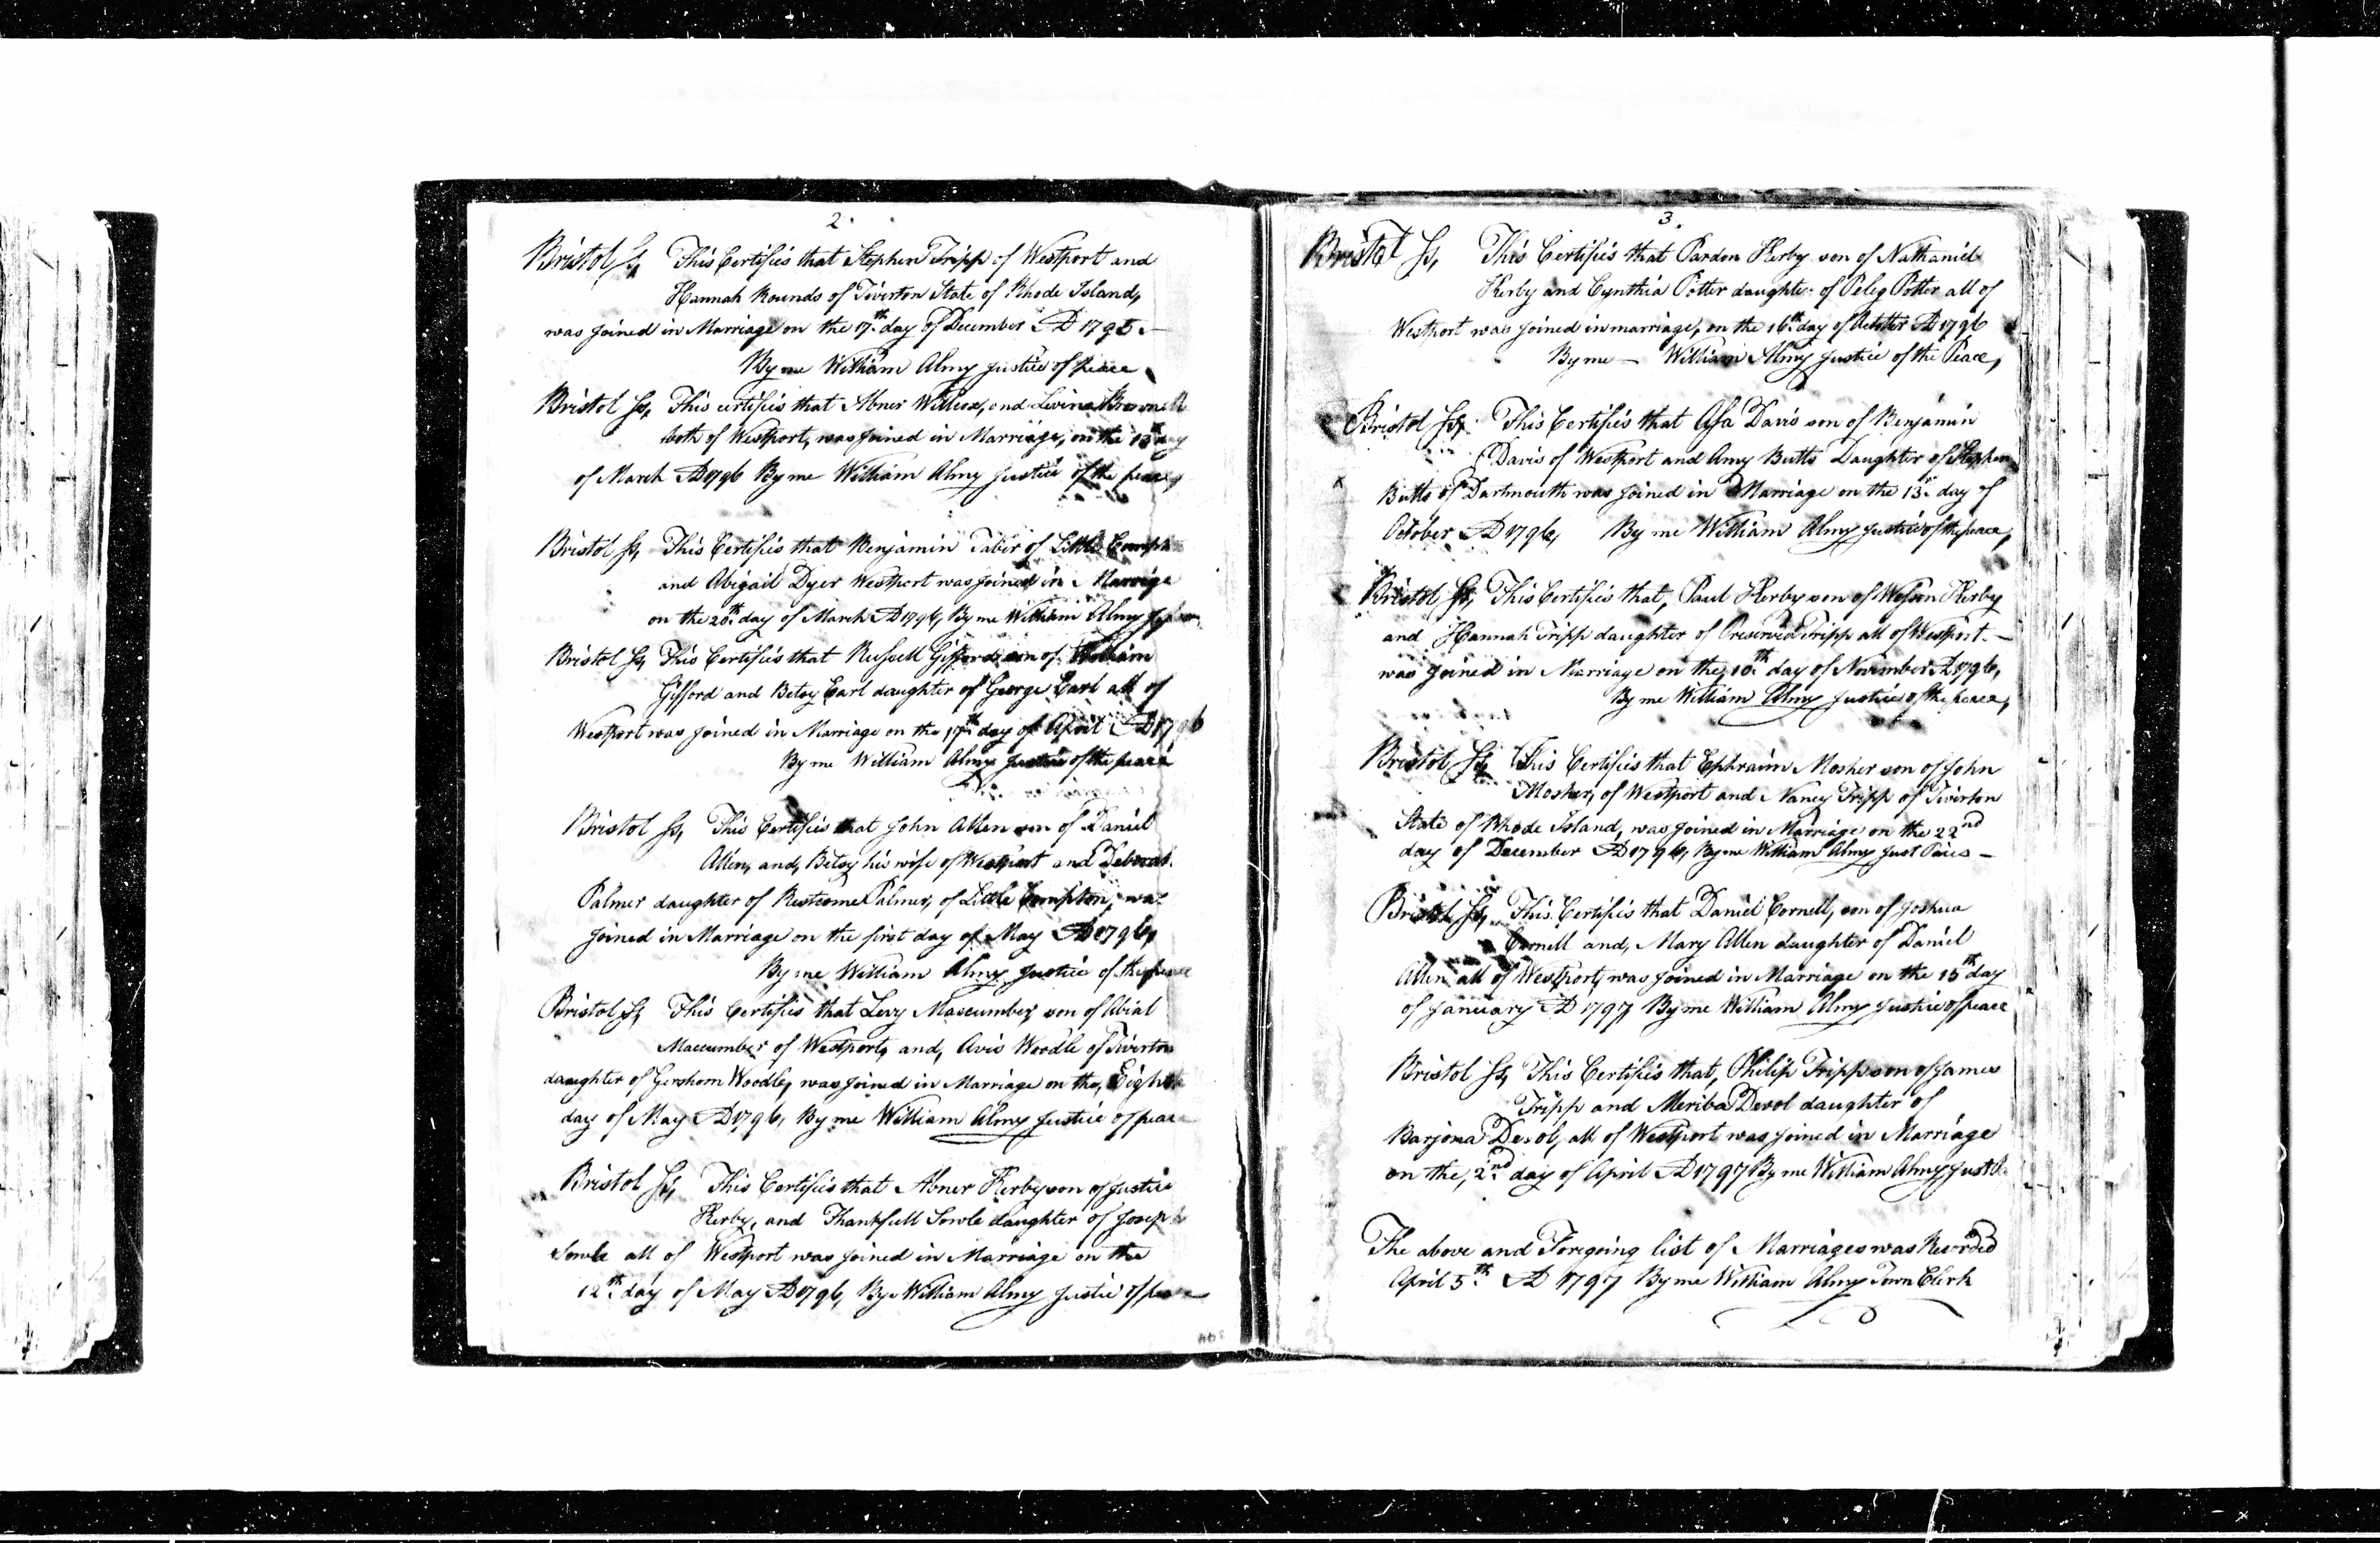 2.
Bristol Ss, This Certifies that Stephen Tripp of Westport and
Hannah Rounds of Tiverton State of Rhode Island,
was joined in Marriage on the 17th day of December AD 1795 —
By me William Almy Justice of peace
Bristol Ss, This certifies that Abner Willcox, and Levina Brownell
both of Westport, was joined in Marriage, on the 13th day
of March AD 1796 By me William Almy Justice of the peace,
Bristol Ss, This Certifies that Benjamin Taber of Little
and Abigail Dyer Westport was joined in Marrige
on the 20th day of March AD 1796, By me William Almy
Bristol Ss, This Certifies that Russell Gifford son of William
Gifford and Betsy Earl daughter of George Earl all of
Westport was joined in Marriage on the 17th day of April AD 1796
By me William Almy Justice of the peace
Bristol Ss, This Certifies that John Allen son of Daniel
Allen, and, Betsy his wife of Westport and Deborah
Palmer daughter of Restcome Palmer, of Little Compton, was
joined in Marriage on the first day of May AD 1796,
By me William Almy Justice of the peace
Bristol Ss, This Certifies that Levy Maccumber son of Abial
Maccumber of Westport, and, Avis Woodle of Tiverton
daughter of Gershom Woodle, was joined in Marriage on the, Eighth
day of May AD 1796, By me William Almy Justice of peace
Bristol Ss, This Certifies that Abner Kerby son of Justice
Kerby, and Thankfull Sowle daughter of Joseph
Sowle all of Westport was joined in Marriage on the
12th day of May AD 1796, By William Almy Justice of peace
3.
Bristol Ss, This Certifies that Pardon Kerby son of Nathaniel
Kerby and Cynthia Potter daughter of Peleg Potter all of
Westport was joined in marriage, on the 16th day of October AD 1796
By me — William Almy Justice of the Peace,
Bristol Ss, This Certifies that Asa Davis son of Benjamin
Davis of Westport and Amy Butts Daughter of Stephen
Butts of Dartmouth was joined in Marriage on the 13th day of
October AD 1796, By me William Almy Justice of the peace,
Bristol Ss, This Certifies that, Paul Kerby son of Weson Kerby
and Hannah Tripp daughter of Preserved Tripp all of Westport —
was joined in Marriage on the, 10th day of November AD 1796,
By me William Almy Justice of the peace,
Bristol Ss, This Certifies that Ephraim Mosher son of John
Mosher, of Westport and Nancy Tripp of Tiverton
State of Rhode Island, was joined in Marriage on the 22nd
day of December AD 1796, By me William Almy Just Pacis —
Bristol Ss, This Certifies that Daniel Cornell, son of Joshua
Cornell and, Mary Allen daughter of Daniel
Allen all of Westport, was joined in Marriage on the 15th day
of January AD 1797 By me William Almy Justice of peace
Bristol Ss, This Certifies that, Philip Tripp son of James
Tripp and Meriba Devol daughter of
Barjona Devol, all of Westport was joined in Marriage
on the, 2nd day of April AD 1797 By me William Almy Just
The above and Foregoing list of Marriages was Recorded
April 5th AD 1797 By me William Almy Town Clerk